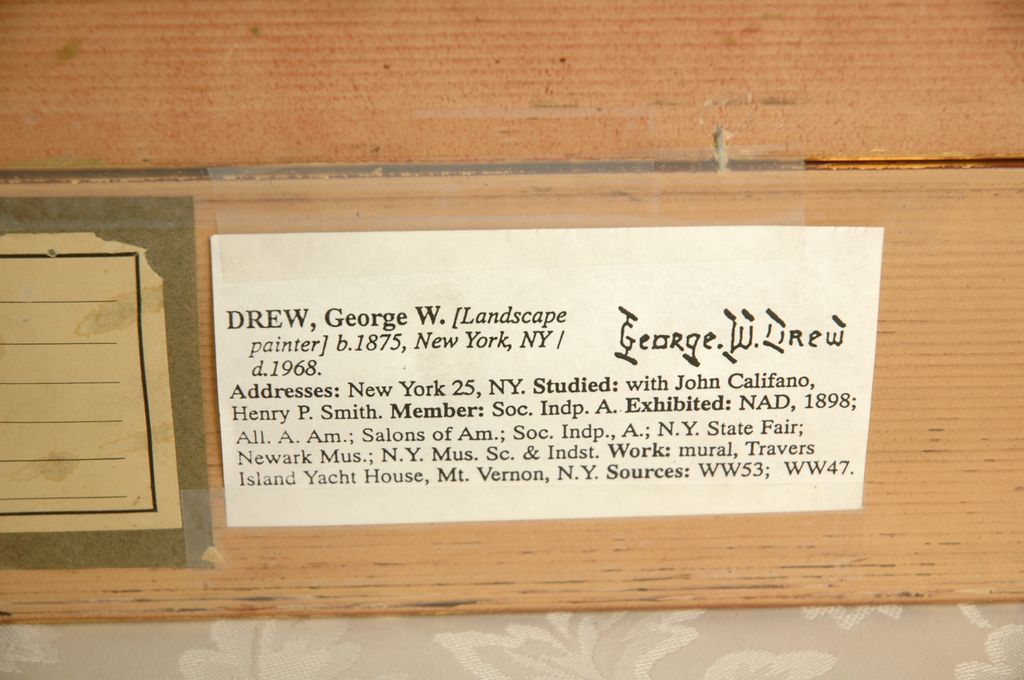 DREW, George W. [Landscape
painter] b.1875, New York, NY /
d.1968.
George.W.Drew
Addresses: New York 25, NY. Studied: with John Califano,
Henry P. Smith. Member: Soc. Indp. A. Exhibited: NAD, 1898;
All. A. Am.; Salons of Am.; Soc. Indp., A.; N.Y. State Fair;
Newark Mus.; N.Y. Mus. Sc. & Indst. Work: mural, Travers
Island Yacht House, Mt. Vernon, N.Y. Sources: WW53; WW47.